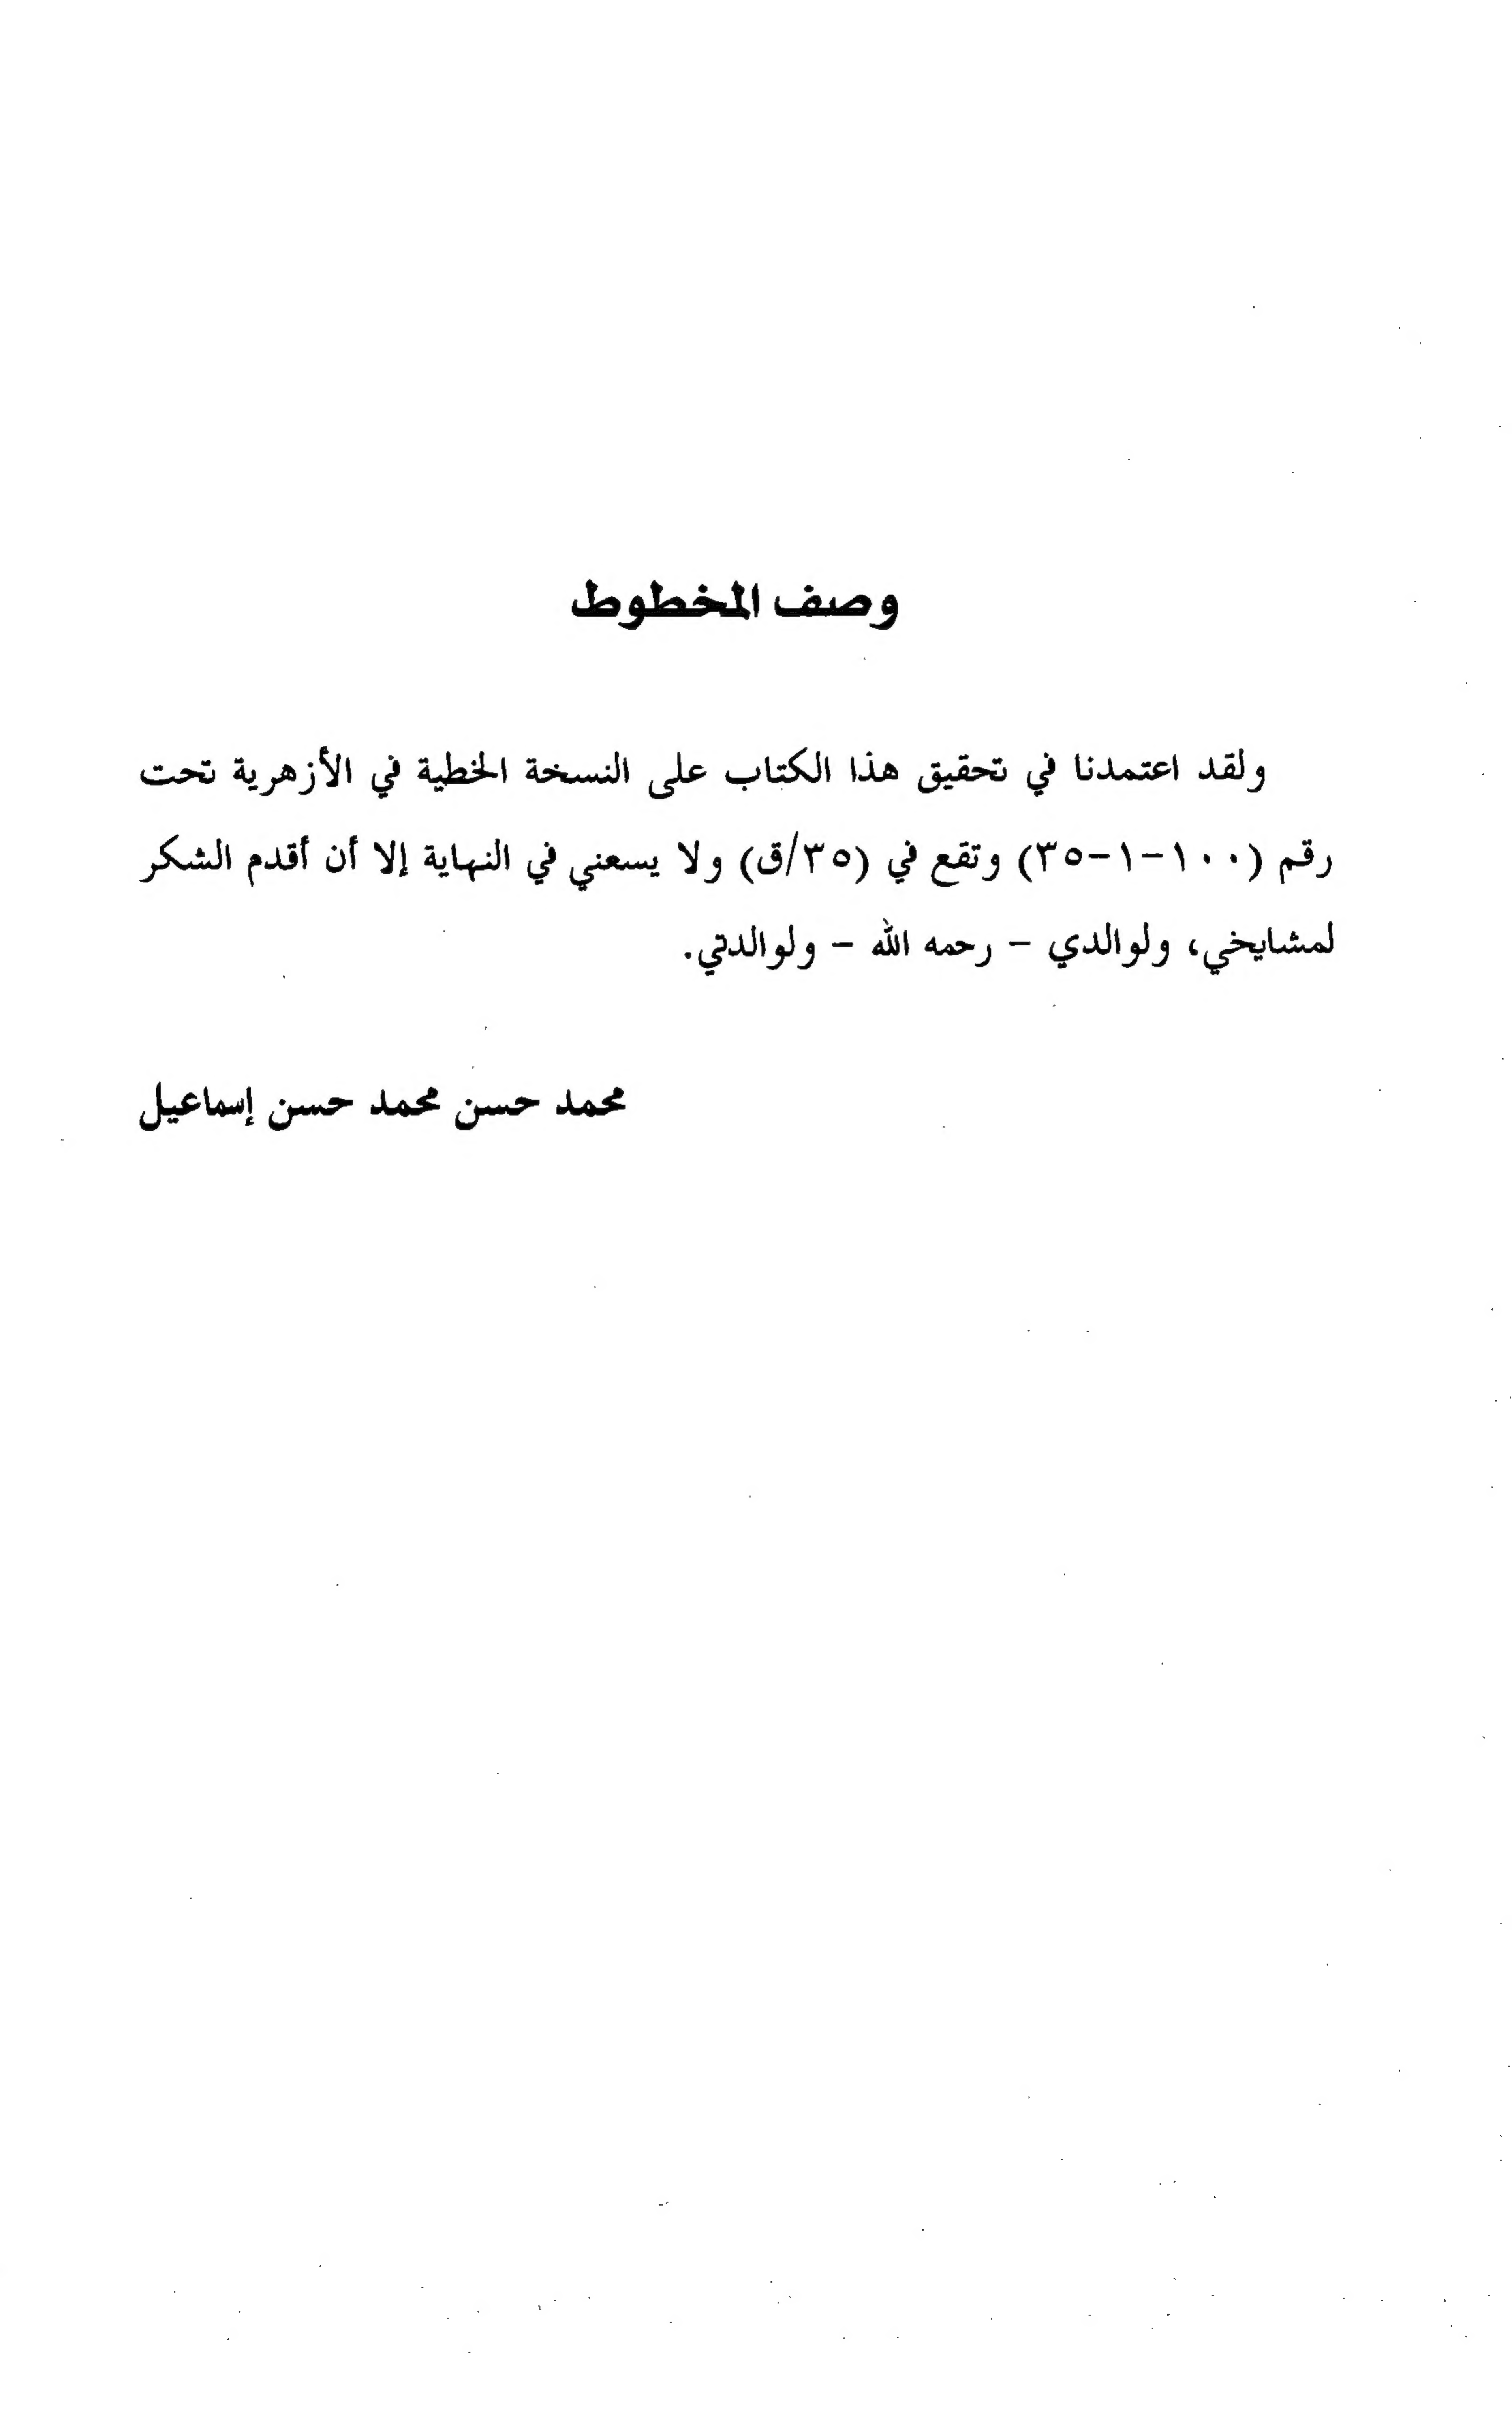 وصف المخطوط
ولقد اعتمدنا في تحقيق هذا الكتاب على النسخة الخطية في الأزهرية تحت
رقم (١٠٠-١-٣٥) وتقع في (٣٥/ق) ولا يسعني في النهاية إلا أن أقدم الشكر
لمشايخي، ولوالدي - رحمه الله - ولوالدتي.
محمد حسن محمد حسن إسماعيل